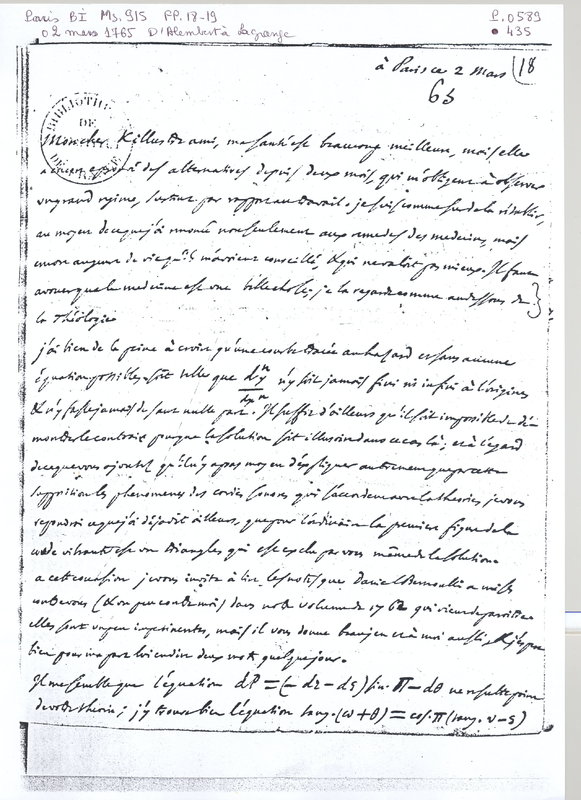 Paris BI Ms. 915 FF. 18-19
P. 0589
02 mars 1765 D'Alembert à Lagrange
• 435
à Paris ce 2 Mars
18
65
BIBLIOTH
DE
Mon cher & illustre ami, ma santé est beaucoup meilleure, mais elle
a encore des alternatives depuis deux mois, qui m'obligent à observer
un grand régime, surtout par rapport au travail. je suis comme sur de la rétablir,
au moyen de ce que j'ai renoncé non seulement aux remedes des medecins, mais
encore au genre de vie qu'ils m'avoient conseillé, & qui ne valoit pas mieux. Il faut
avouer que la medecine est une belle chose. je la regarde comme au dessous de
la Théologie
j'ai bien de la peine à croire qu'une courbe tracée au hasard et sans aucune
équation possible, soit telle que d^n y / dx^n n'y soit jamais fini ni infini à l'origine,
& n'y fasse jamais de saut nulle part. Il suffit d'ailleurs qu'il soit impossible de dé-
montrer le contraire pour que la solution soit illusoire dans ce cas là; et à l'égard
de ce que vous ajoutez qu'il n'y a pas moyen d'expliquer autrement que par cette
supposition les phenomenes des cordes sonores qui s'accordent avec la theorie, je vous
repondrai ce que j'ai déja dit ailleurs, que pour l'ordinaire la premiere figure de la
corde vibrante est un triangle, qui est exclu par vous même de la solution.
a cette occasion je vous invite à lire les notes que Daniel Bernoulli a mises
contre vous (& un peu contre moi) dans notre volume de 1762 qui vient de paroitre
elles sont un peu impertinentes, mais il vous donne beau jeu et à moi aussi, & j'espere
bien pour ma part lui en dire deux mots quelque jour.
Il me semble que l'équation dP = (- dz - dς) sin. Π - dθ ne resulte point
de votre theorie; j'y trouve bien l'équation tang. (ω + θ) = cos. Π (tang. ν - ς)